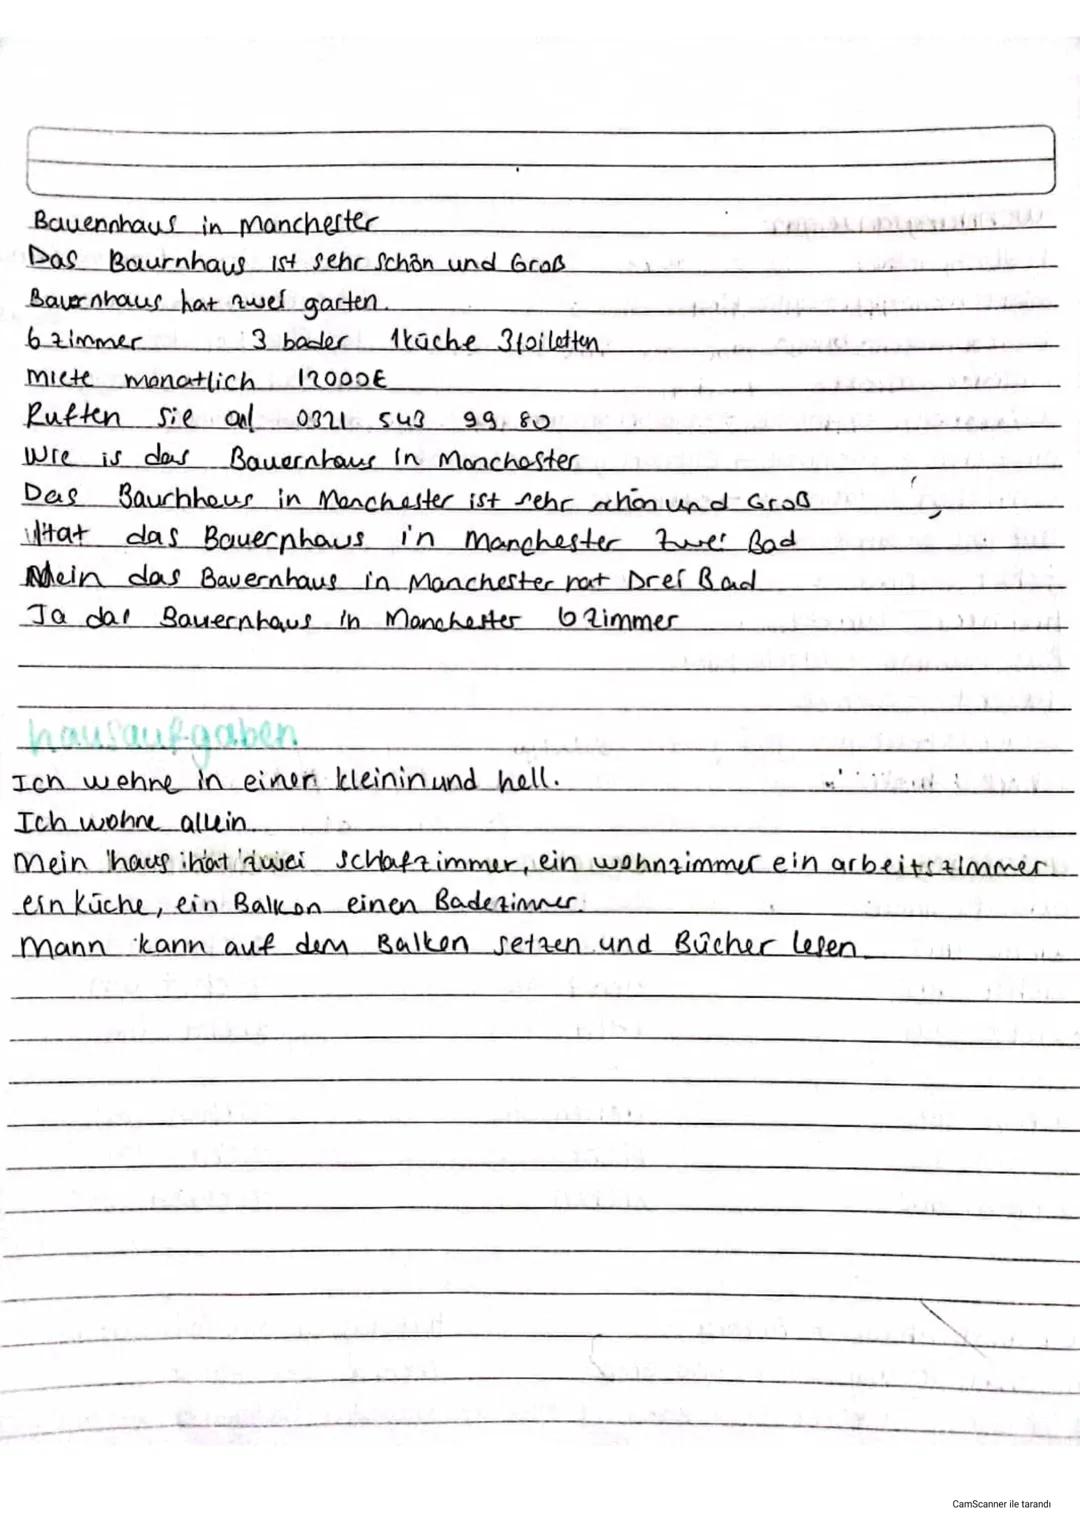 Bauennhaus in Manchester
Das Baurnhaus ist sehr schön und Groß
Bauernhaus hat zwei garten.
6 zimmer 3 bader 1küche 3toiletten
miete monatlich 12000€
Ruften sie an 0321 543 99 80
Wie is das Bauernhaus in Manchester
Das Baurhhaus in Manchester ist sehr schön und Groß
Hat das Bauerphaus in Manchester zwei Bad
Nein das Bauernhaus in Manchester hat Drei Bad
Ja das Bauernhaus in Manchester 6 zimmer
hausaufgaben
Ich wohne in einen kleinin und hell.
Ich wohne allein.
Mein haus hat zwei schlafzimmer, ein wohnzimmer ein arbeitszimmer
ein küche, ein Balkon einen Badezimmer.
Mann kann auf dem Balkon setzen und Bücher lesen
CamScanner ile tarandı